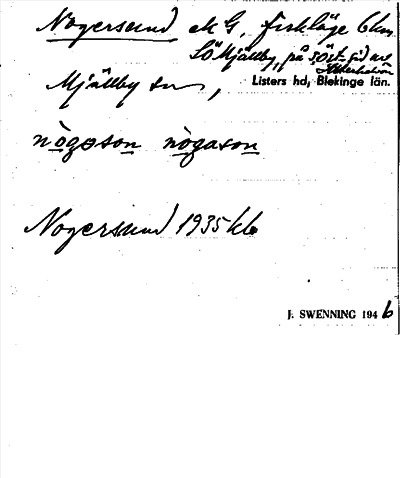 Nogersund MG, fiskläge 6 km
SÖ Mjällby, på söst. sid av
Mjällby sn,
Listers hd, Blekinge län.
nògəson nògason
Nogersund 1935 kb
J. SWENNING 1946